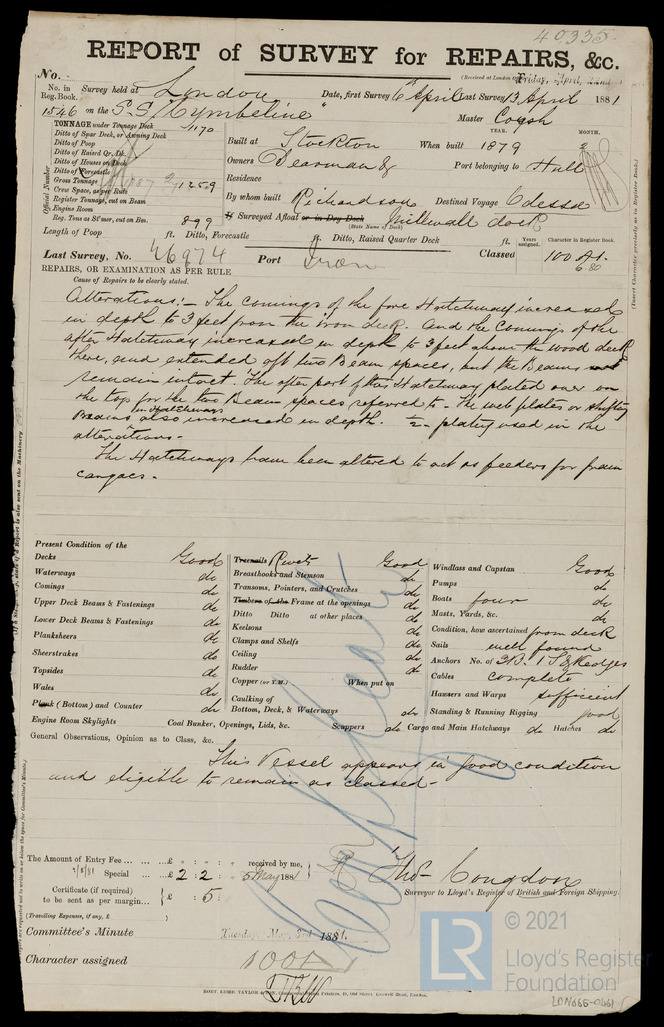 40335
REPORT of SURVEY for REPAIRS, &c.
(Received at London Friday, April, 22nd
No.
No. in Reg. Book. Survey held at London Date, first Survey 6 April Last Survey 13 April 1881
1546 on the S.S. "Cymbeline" Master
TONNAGE under Tonnage Deck 1170
Ditto of Spar Deck, or Awning Deck
Ditto of Poop
Ditto of Raised Qr. Dk.
Ditto of Houses on Deck
Ditto of Forecastle
Gross Tonnage 1259
Crew Space, as per Rule
Register Tonnage, cut on Beam
Engine Room
Reg. Tons as St'mer, cut on Bm. 899
Official Number
YEAR. MONTH.
Built at Stockton When built 1879 2
Owners Pearman & Port belonging to Hull
Residence
By whom built Richardson Destined Voyage Odessa
If Surveyed Afloat or in Dry Dock Millwall dock
(State Name of Dock)
Length of Poop ft. Ditto, Forecastle ft. Ditto, Raised Quarter Deck ft.
Years assigned. Character in Register Book.
Last Survey, No. 46974 Port Iron Classed 100 A1.
6.80
(Insert Character precisely as in Register Book.)
REPAIRS, OR EXAMINATION AS PER RULE
Cause of Repairs to be clearly stated.
Alterations:- The comings of the fore Hatchway increased
in depth to 3 feet from the iron deck. And the Comings of the
after Hatchway increased in depth to 3 feet above the wood deck
there, and extended aft two Beam spaces, but the Beams
remain intact. The after part of this Hatchway plated over on
the top for the two Beam spaces referred to - The web plates or shifting
Beams in Hatchways also increased in depth. ½ plating used in the
alterations.
The Hatchways have been altered to act as feeders for grain
cargoes.
Present Condition of the
Decks Good
Waterways do
Comings do
Upper Deck Beams & Fastenings do
Lower Deck Beams & Fastenings do
Planksheers do
Sheerstrakes do
Topsides do
Wales do
Plank (Bottom) and Counter do
Engine Room Skylights Coal Bunker, Openings, Lids, &c. Scuppers do Cargo and Main Hatchways do Hatches do
Treenails Rivets Good
Breasthooks and Stemson do
Transoms, Pointers, and Crutches do
Timbers of the Frame at the openings do
Ditto Ditto at other places do
Keelsons do
Clamps and Shelfs do
Ceiling do
Rudder do
Copper (or Y.M.) When put on
Caulking of
Bottom, Deck, & Waterways do
Windlass and Capstan Good
Pumps do
Boats four do
Masts, Yards, &c. do
Condition, how ascertained from deck
Sails well found
Anchors No. of 3B. 1S & Kedges
Cables complete
Hawsers and Warps sufficient
Standing & Running Rigging good
General Observations, Opinion as to Class, &c.
This Vessel appears in good condition
and eligible to remain as classed-
The Amount of Entry Fee ... £ : : received by me,
Special ... £ 2 : 2 : 5 May 1881
Certificate (if required)
to be sent as per margin... £ : 5 :
(Travelling Expenses, if any, £ )
Thos. Congdon
Surveyor to Lloyd's Register of British and Foreign Shipping.
Committee's Minute Tuesday May 3rd 1881.
Character assigned 100A
© 2021
LR
Lloyd's Register
Foundation
LON665-0461